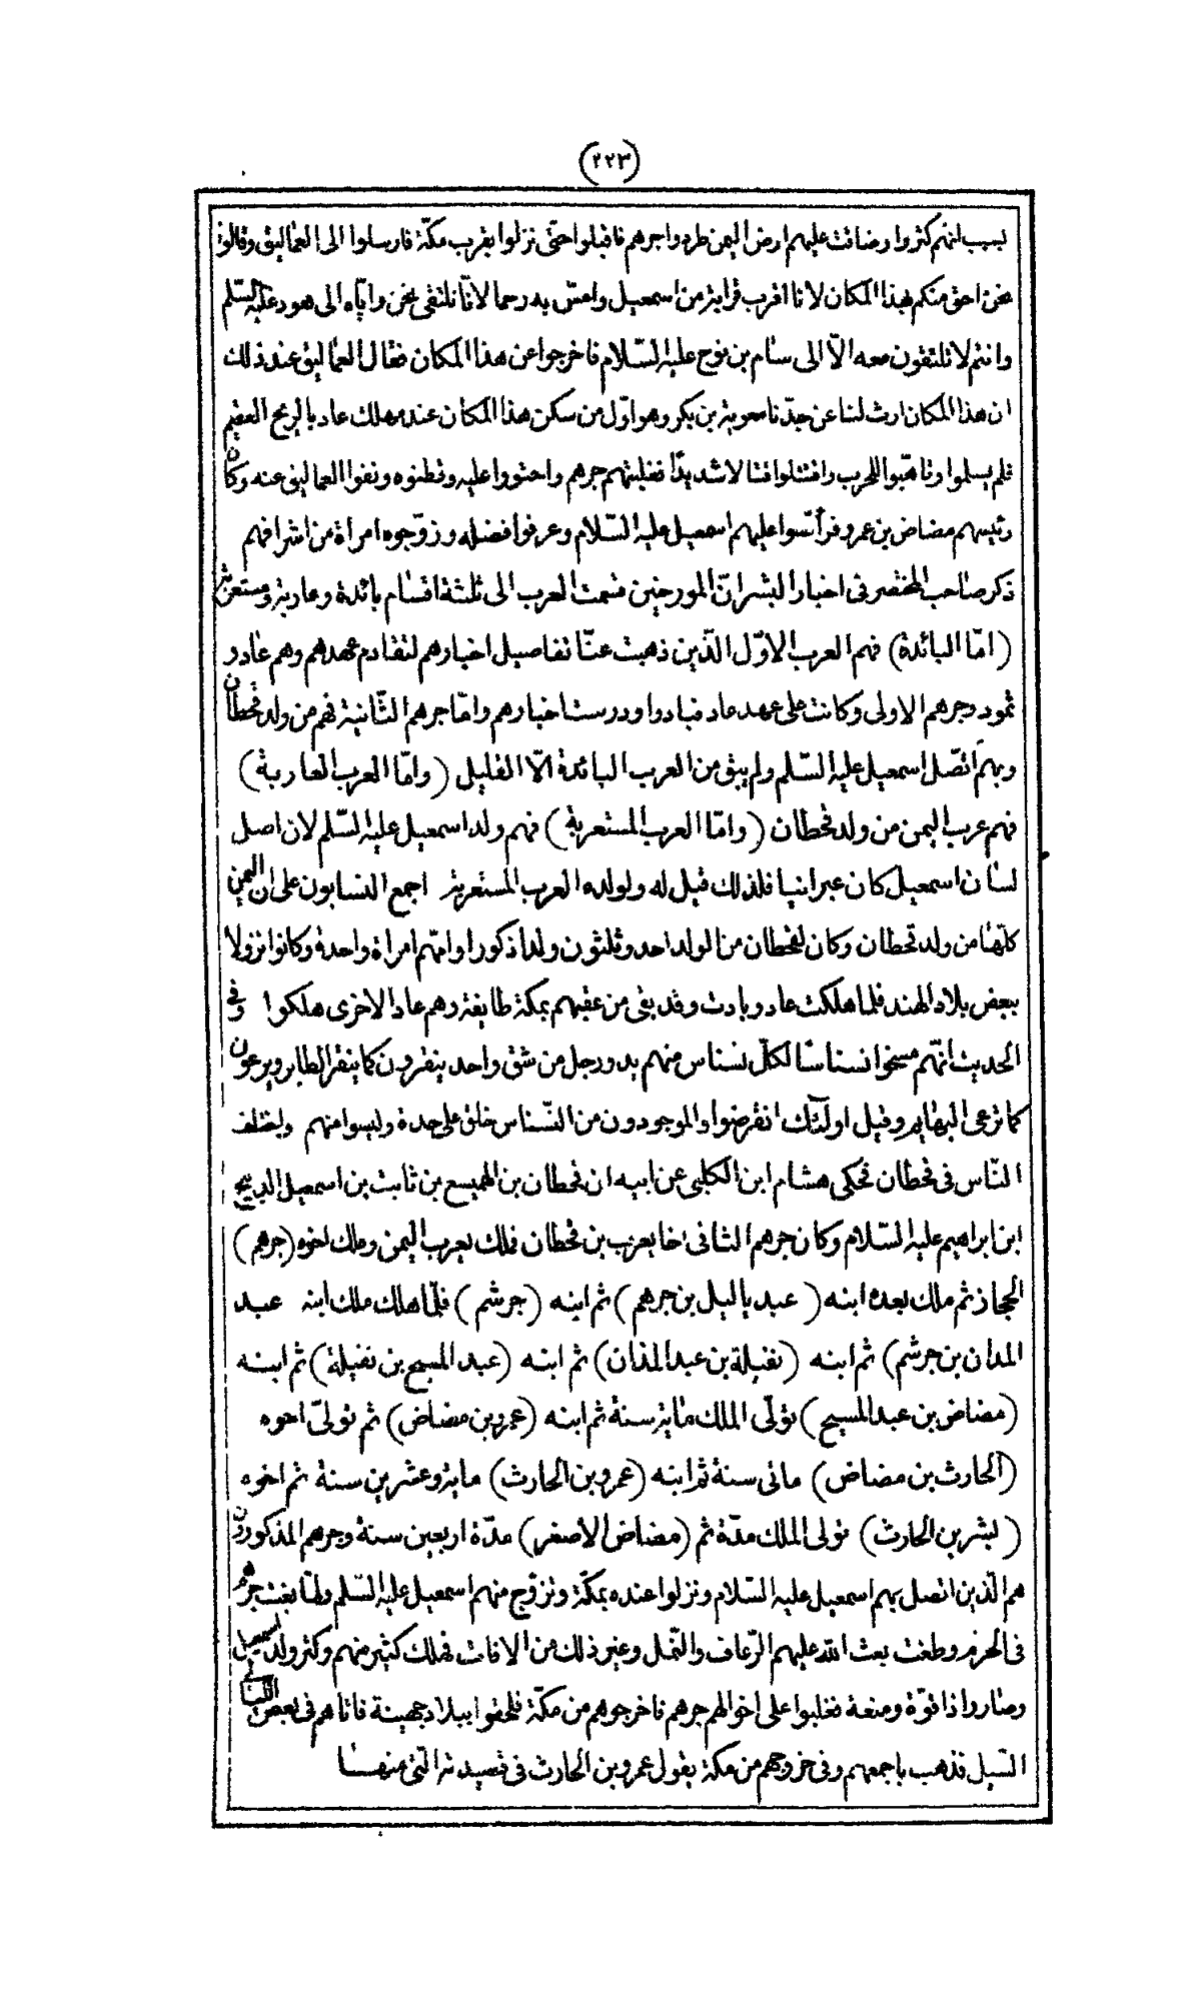 (٢٢٣)
بسبب انهم كثروا وضاقت عليهم ارض اليمن طردوا جرهم فاقبلوا حتى نزلوا بقرب مكّة فارسلوا الى العماليق وقالوا
نحن احق منكم بهذا المكان لانا اقرب قرابة من اسمعيل وامسّ به رحما لانّا نلتقى نحن وايّاه الى هود عليه السّلم
وانتم لا تلتقون معه الّا الى سام بن نوح عليه السّلام فاخرجوا عن هذا المكان فقال العماليق عند ذلك
ان هذا المكان ارث لنا عن جدّنا معوية بن بكر وهو اوّل من سكن هذا المكان عند مهلك عاد بالريح العقيم
فلم يسلموا وتاهّبوا للحرب واقتتلوا قتالا شديدًا فغلبتهم جرهم واحتووا عليه وقطنوه ونفوا العماليق عنه وكان
رئيسهم مضاض بن عمرو فرأسّوا عليهم اسمعيل عليه السّلام وعرفوا فضله وزوّجوه امراة من اشرافهم
ذكر صاحب المختصر فى اخبار البشر انّ المورخين قسمت العرب الى ثلثة اقسام بائدة وعاربة ومستعربة
(امّا البائدة) فهم العرب الاوّل الّذين ذهبت عنّا تفاصيل اخبارهم لتقادم عهدهم وهم عاد و
ثمود وجرهم الاولى وكانت على عهد عاد فبادوا ودرست اخبارهم وامّا جرهم الثّانية فهم من ولد قحطان
وبهم اتّصل اسمعيل عليه السّلم ولم يبق من العرب البائدة الّا القليل (وامّا العرب العاربة)
فهم عرب اليمن من ولد قحطان (وامّا العرب المستعربة) فهم ولد اسمعيل عليه السّلم لان اصل
لسان اسمعيل كان عبرانيا فلذلك قيل له ولولده العرب المستعربة اجمع النسابون على ان اليمن
كلّها من ولد قحطان وكان لقحطان من الولد احد وثلثون ولدا ذكورا وامّهم امراة واحدة وكانوا نزولا
ببعض بلاد الهند فلما هلكت عاد وبادت وقد بقى من عقبهم بمكة طايفة وهم عاد الاخرى هلكوا وفى
الحديث انّهم مسخوا نسناسًا لكلّ نسناس منهم يد ورجل من شق واحد ينقرون كما ينقر الطاير ويرعون
كما ترعى البهايم وقيل اولٓئك انقرضوا والموجودون من النّسناس خلق على حدة وليسوا منهم واختلف
النّاس فى قحطان فحكى هشام ابن الكلبى عن ابيه ان قحطان بن الهميسع بن ثابت بن اسمعيل الذبيح
ابن ابراهيم عليه السّلام وكان جرهم الثانى اخا يعرب بن قحطان فملك يعرب اليمن وملك اخوه (جرهم)
الحجاز ثم ملك بعده ابنه (عبد ياليل بن جرهم) ثم ابنه (جرشم) فلمّا هلك ملك ابنه عبد
المدان بن جرشم) ثم ابنه (نفيلة بن عبد المدان) ثم ابنه (عبد المسيح بن نفيلة) ثم ابنه
(مضاض بن عبد المسيح) تولّى الملك ماية سنة ثم ابنه (عمرو بن مضاض) ثم تولىّ اخوه
(الحارث بن مضاض) ماتى سنة ثم ابنه (عمرو بن الحارث) ماية وعشرين سنة ثم اخوه
(بشر بن الحارث) تولى الملك مدّة ثم (مضاض الاصغر) مدّة اربعين سنة وجرهم المذكورون
هم الّذين اتصل بهم اسمعيل عليه السّلام ونزلوا عنده بمكّة وتزوّج منهم اسمعيل عليه السّلم ولمّا بغت جرهم
فى الحرم وطغت بعث اللّه عليهم الرّعاف والنّمل وغير ذلك من الافات فهلك كثير منهم وكثر ولد اسمعيل
وصاروا ذا قوّة ومنعة فغلبوا على اخوالهم جرهم فاخرجوهم من مكّة فلحقوا ببلاد جهينة فاتاهم فى بعض اللّيالى
السّيل فذهب باجمعهم وفى خروجهم من مكة يقول عمرو بن الحارث فى قصيدته الّتى منها